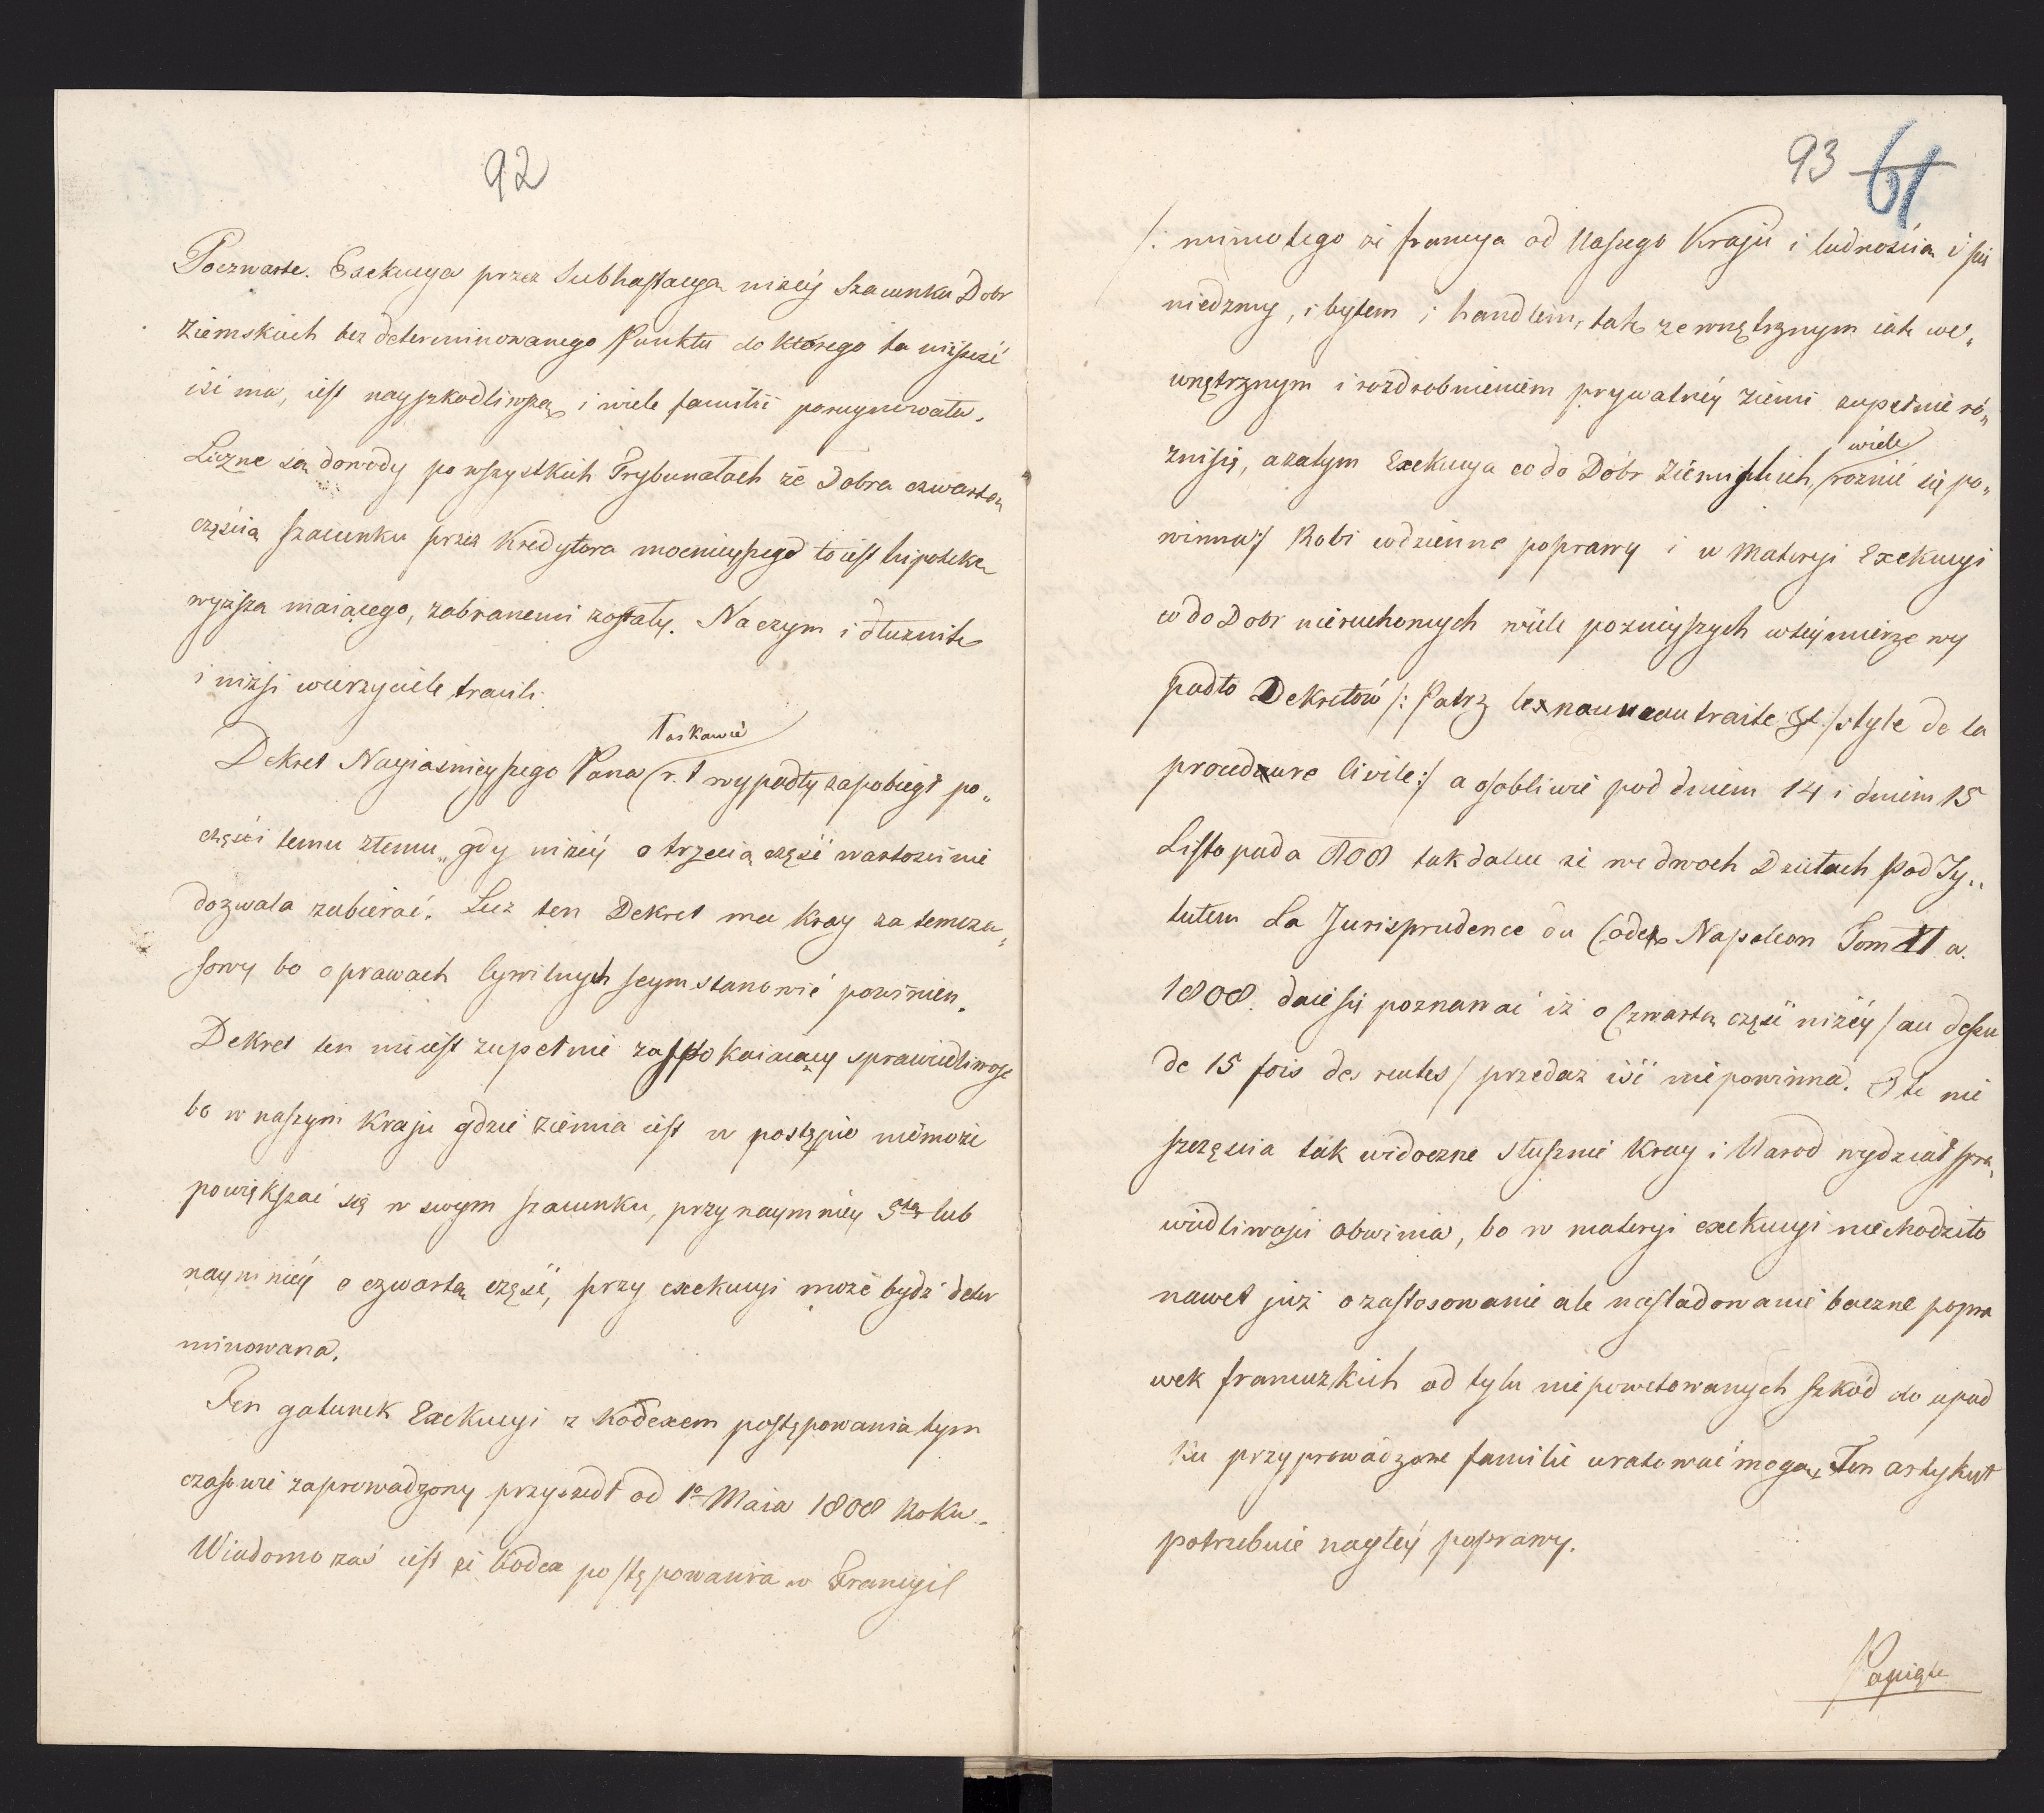 92
Poczwarte. Exekucya przez Subhastacyą niżéy Szacunku Dobr
Ziemskich bez determinowanego Punktu do którego ta niższość
iść ma, iest nayszkodliwszą i wiele familii porujnowała.
Liczne są dowody po wszystkich Trybunałach że Dobra czwartą
częścią szacunku przez Kredytora mocnieyszego to iest hipotekę
wyższą maiącego, zabranemi zostały. Na czym i dłużnik
i niżsi wierzyciele tracili.
Dekret Nayiaśnieyszego Pana łaskawie
r. t wypadły zapobiegł po„
części temu złemu, gdy niżéy o trzecią część wartości nie
dozwala zabierać. Lecz ten Dekret ma Kray za temcza„
sowy bo o prawach Cywilnych seym stanowić powinien.
Dekret ten nie iest zupełnie zaspokaiaiący sprawiedliwość
bo w naszym Kraju gdzie ziemia iest w postępie niemoże
powiększać się w swym szacunku, przynaymniéy 5tą lub
naymniéy o czwartą część, przy exekucyi może bydź deter
minowana.
Ten gatunek Exekucyi z Kodexem postępowania tym
czasowie zaprowadzony przyszedł od 1o Maia 1808 Roku.
Wiadomo zaś iest że Kodex postępowania w Francyi
93 61
/: mimo tego że francya od Naszego Kraju i ludnością i pie
niędzmy, i bytem i handlem, tak zewnętrznym iak we„
wnętrznym i rozdrobnieniem prywatnéy ziemi zupełnie ró„
żni się, a zatym Exekucya co do Dóbr Ziemskich, wiele
rożnić się po„
winna :/ Robi codzienne poprawy i w Materyi Exekucyi
co do Dobr nieruchomych wiele poznieyszych w téy mierze wy
padło Dekretów /: Patrz le nouveau traité et style de la
procedure Civile :/ a osobliwie pod dniem 14 i dniem 15
Listopada 808 tak dalece że we dwoch Dziełach pod Ty„
tułem La Jurisprudence du Code Napoleon Tom XI a.
1808. daie się poznawać iż o Czwartą część niżéy / au desu
de 15 fois des rentes / przedaż iść nie powinna. O te nie
szczęścia tak widoczne słusznie Kray i Narod wydział spra„
wiedliwości obwinia, bo w materyi exekucyi nie chodziło
nawet już o zastosowanie ale nasladowanie baczne popra
wek francuzkich od tylu niepowetowanych szkód do upad
ku przyprowadzone familie uratować mogą. Ten artykuł
potrzebuie nagłéy poprawy.
Popiąte